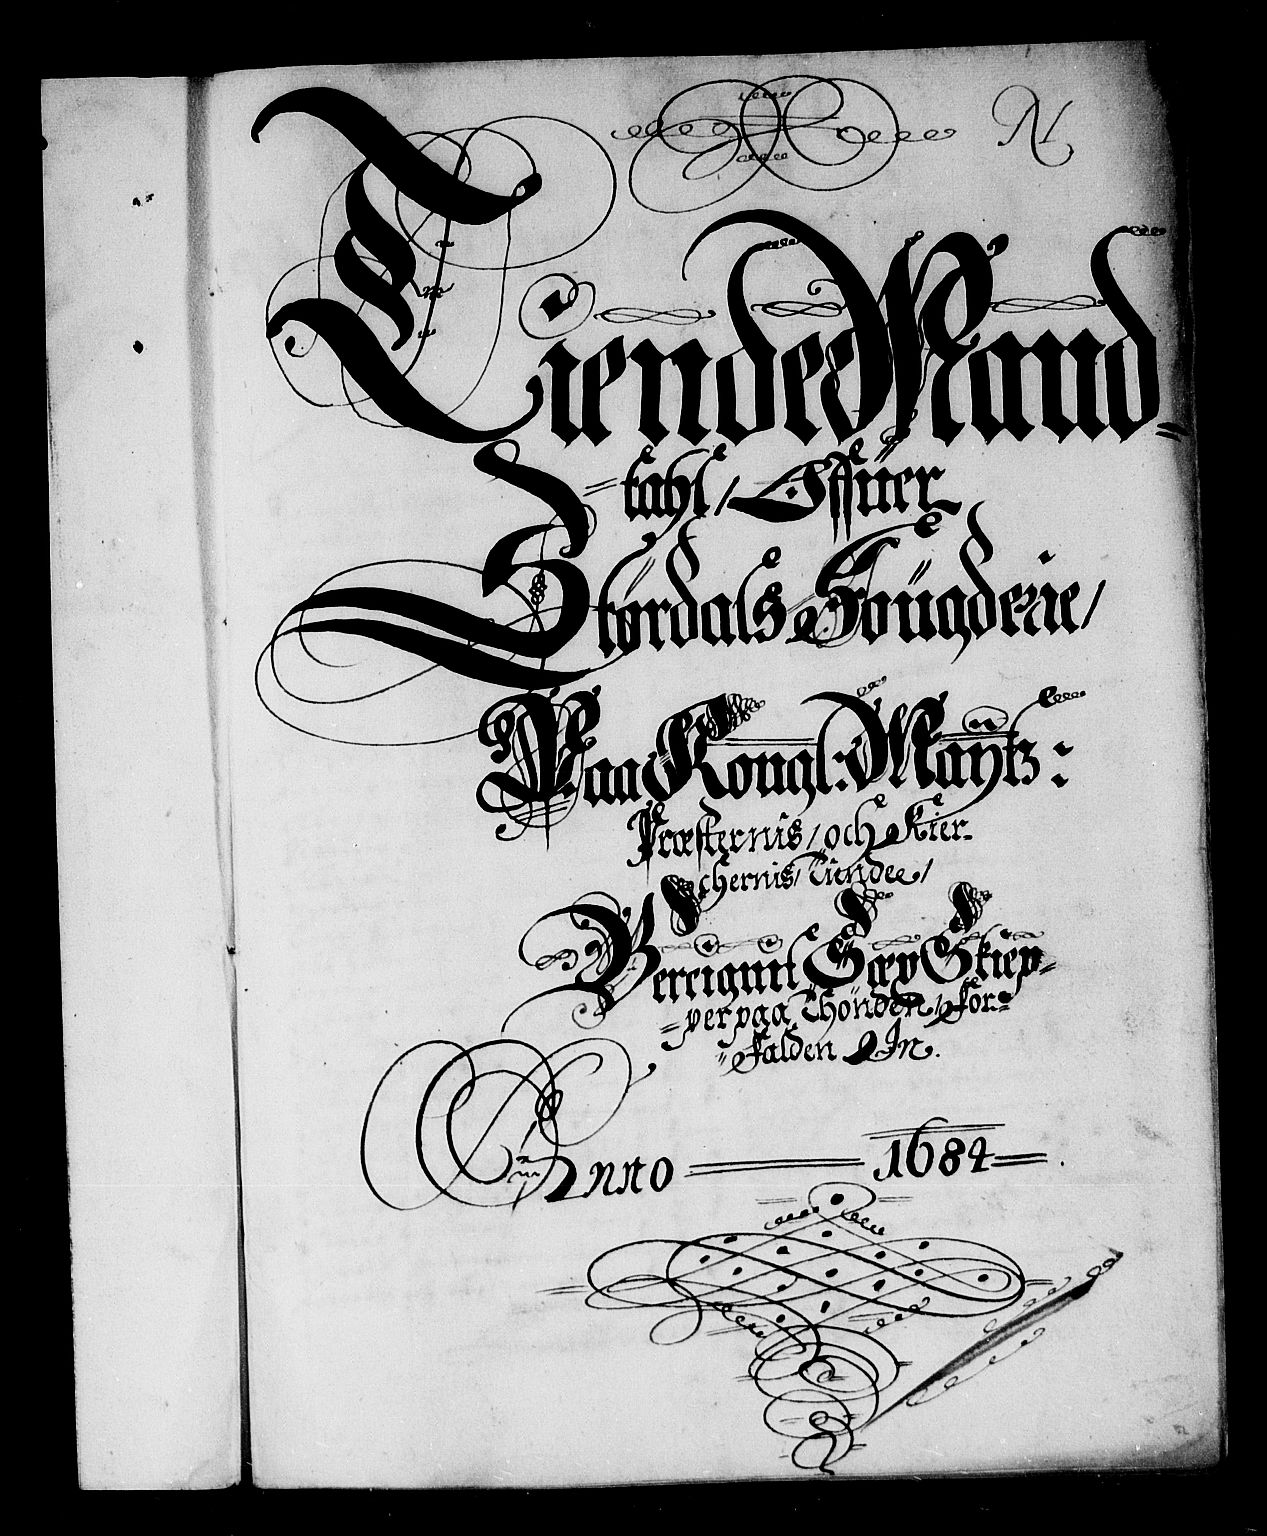 N
Tiende Mand-
=tahl / Offuer
Størdals Fougderie /
Paa Kongl: Maÿtz:
Præsternis / och Kier-
chernis / Tiende /
Bereignit
=per paa Thönden / For-
=falden
Anno == 1684 ==